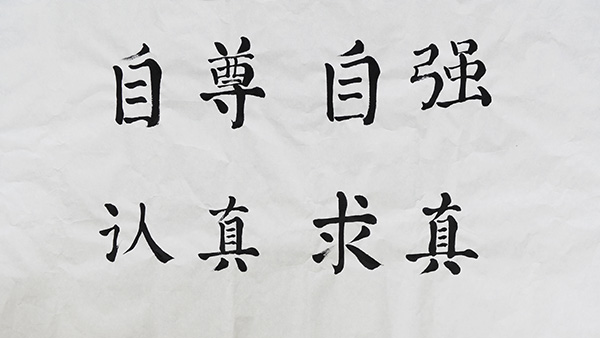 自尊自强
认真求真